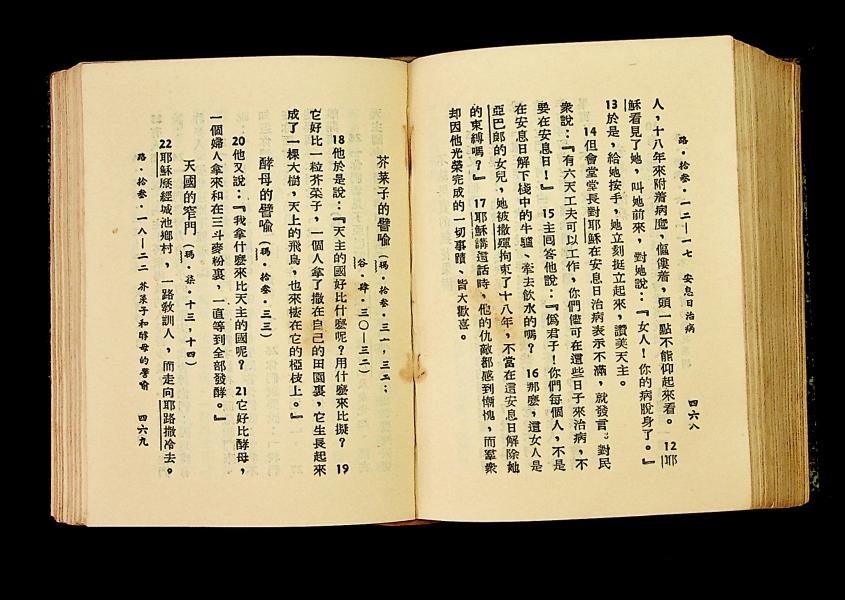 路・拾叁・一二—一七　安息日治病　四六八
人，十八年來附着病魔，傴僂着，頭一點不能仰起來看。　12耶
穌看見了她，叫她前來，對她說：『女人！你的病脫身了。』
13於是，給她按手，她立刻挺立起來，讚美天主。
14但會堂堂長對耶穌在安息日治病表示不滿，就發言：對民
衆說：『有六天工夫可以工作，你們儘可在這些日子來治病，不
要在安息日！』　15主囘答他說：『僞君子！你們每個人，不是
在安息日解下棧中的牛驢、牽去飲水的嗎？　16那麽，這女人是
亞巴郎的女兒，她被撒殫拘束了十八年，不當在這安息日解除她
的束縛嗎？』　17耶穌講這話時，他的仇敵都感到慚愧，而羣衆
却因他光榮完成的一切事蹟、皆大歡喜。
芥菜子的譬喻（瑪・拾叁・三一，三二；
谷・肆・三〇—三二）
18他於是說：『天主的國好比什麽呢？用什麽來比擬？　19
它好比一粒芥菜子，一個人拿了撒在自己的田園裏，它生長起來
成了一棵大樹，天上的飛鳥，也來棲在它的椏枝上。』
酵母的譬喻（瑪・拾叁・三三）
20他又說：『我拿什麽來比天主的國呢？　21它好比酵母，
一個婦人拿來和在三斗麥粉裏，一直等到全部發酵。』
天國的窄門（瑪・柒・十三，十四）
22耶穌歷經城池鄉村，一路敎訓人，而走向耶路撒冷去。
路・拾叁・一八—二二　芥菜子和酵母的譬喻　四六九